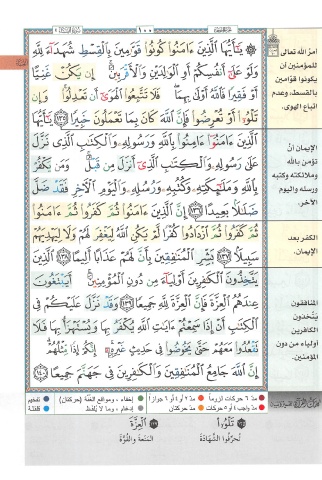 ١٠٠
۞ يَٰٓأَيُّهَا ٱلَّذِينَ ءَامَنُوا۟ كُونُوا۟ قَوَّٰمِينَ بِٱلْقِسْطِ شُهَدَآءَ لِلَّهِ
وَلَوْ عَلَىٰٓ أَنفُسِكُمْ أَوِ ٱلْوَٰلِدَيْنِ وَٱلْأَقْرَبِينَ ۚ إِن يَكُنْ غَنِيًّا
أَوْ فَقِيرًا فَٱللَّهُ أَوْلَىٰ بِهِمَا ۖ فَلَا تَتَّبِعُوا۟ ٱلْهَوَىٰٓ أَن تَعْدِلُوا۟ ۚ وَإِن
تَلْوُۥٓا۟ أَوْ تُعْرِضُوا۟ فَإِنَّ ٱللَّهَ كَانَ بِمَا تَعْمَلُونَ خَبِيرًا ١٣٥ يَٰٓأَيُّهَا
ٱلَّذِينَ ءَامَنُوٓا۟ ءَامِنُوا۟ بِٱللَّهِ وَرَسُولِهِۦ وَٱلْكِتَٰبِ ٱلَّذِى نَزَّلَ
عَلَىٰ رَسُولِهِۦ وَٱلْكِتَٰبِ ٱلَّذِىٓ أَنزَلَ مِن قَبْلُ ۚ وَمَن يَكْفُرْ
بِٱللَّهِ وَمَلَٰٓئِكَتِهِۦ وَكُتُبِهِۦ وَرُسُلِهِۦ وَٱلْيَوْمِ ٱلْءَاخِرِ فَقَدْ ضَلَّ
ضَلَٰلًۢا بَعِيدًا ١٣٦ إِنَّ ٱلَّذِينَ ءَامَنُوا۟ ثُمَّ كَفَرُوا۟ ثُمَّ ءَامَنُوا۟
ثُمَّ كَفَرُوا۟ ثُمَّ ٱزْدَادُوا۟ كُفْرًا لَّمْ يَكُنِ ٱللَّهُ لِيَغْفِرَ لَهُمْ وَلَا لِيَهْدِيَهُمْ
سَبِيلًۢا ١٣٧ بَشِّرِ ٱلْمُنَٰفِقِينَ بِأَنَّ لَهُمْ عَذَابًا أَلِيمًا ١٣٨ ٱلَّذِينَ
يَتَّخِذُونَ ٱلْكَٰفِرِينَ أَوْلِيَآءَ مِن دُونِ ٱلْمُؤْمِنِينَ ۚ أَيَبْتَغُونَ
عِندَهُمُ ٱلْعِزَّةَ فَإِنَّ ٱلْعِزَّةَ لِلَّهِ جَمِيعًا ١٣٩ وَقَدْ نَزَّلَ عَلَيْكُمْ فِى
ٱلْكِتَٰبِ أَنْ إِذَا سَمِعْتُمْ ءَايَٰتِ ٱللَّهِ يُكْفَرُ بِهَا وَيُسْتَهْزَأُ بِهَا فَلَا
تَقْعُدُوا۟ مَعَهُمْ حَتَّىٰ يَخُوضُوا۟ فِى حَدِيثٍ غَيْرِهِۦٓ ۚ إِنَّكُمْ إِذًا مِّثْلُهُمْ ۗ
إِنَّ ٱللَّهَ جَامِعُ ٱلْمُنَٰفِقِينَ وَٱلْكَٰفِرِينَ فِى جَهَنَّمَ جَمِيعًا ١٤٠
أمرُ الله تعالى
للمؤمنين أن
يكونوا قوّامين
بالقسط، وعدم
اتباع الهوى.
الإيمانُ أنْ
تؤمن بالله
وملائكته وكتبه
ورسله واليوم
الآخر.
الكفر بعد
الإيمان.
المنافقون
يتّخذون
الكافرين
أولياء من دون
المؤمنين.
مدّ ٦ حركات لزوماً
مدّ ٢ أو ٤ أو ٦ جوازاً
إخفاء ، ومواقع الغُنَّة (حركتان)
تفخيم
مدّ واجب ٤ أو ٥ حركات
مدّ حركتان
إدغام ، وما لا يُلفَظ
قلقلة
تَلْوُوا
تُحَرِّفُوا الشَّهَادَةَ
الْعِزَّةَ
المَنَعَةَ وَالقُوَّةَ